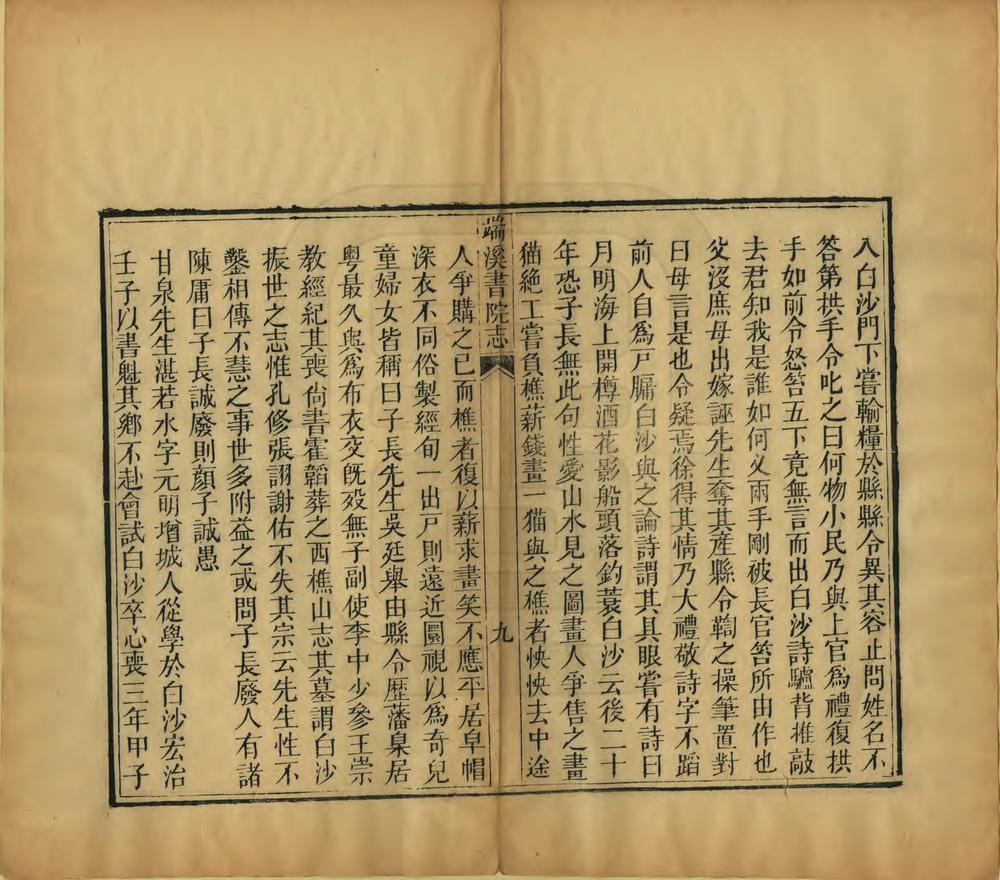 入白沙門下嘗輸糧於縣縣令異其容止問姓名不
答第拱手令叱之曰何物小民乃與上官爲禮復拱
手如前令怒笞五下竟無言而出白沙詩驢背推敲
去君知我是誰如何叉兩手剛被長官笞所由作也
父沒庶母出嫁誣先生奪其產縣令鞫之操筆置對
曰母言是也令疑焉徐得其情乃大禮敬詩字不蹈
前人自爲戸牖白沙與之論詩謂其具眼嘗有詩曰
月明海上開樽酒花影船頭落釣蓑白沙云後二十
年恐子長無此句性愛山水見之圖畫人爭售之畫
猫絶工嘗負樵薪錢畫一猫與之樵者怏怏去中途
端溪書院志
九
人爭購之已而樵者復以薪求畫笑不應平居皁帽
深衣不同俗製經旬一出戸則遠近圜視以爲奇兒
童婦女皆稱曰子長先生吳廷舉由縣令歷藩臬居
粵最久與爲布衣交旣歿無子副使李中少參王崇
教經紀其喪尙書霍韜葬之西樵山志其墓謂白沙
振世之志惟孔修張詡謝佑不失其宗云先生性不
鑿相傳不慧之事世多附益之或問子長廢人有諸
陳庸曰子長誠廢則顔子誠愚
甘泉先生湛若水字元明增城人從學於白沙宏治
壬子以書魁其鄉不赴會試白沙卒心喪三年甲子